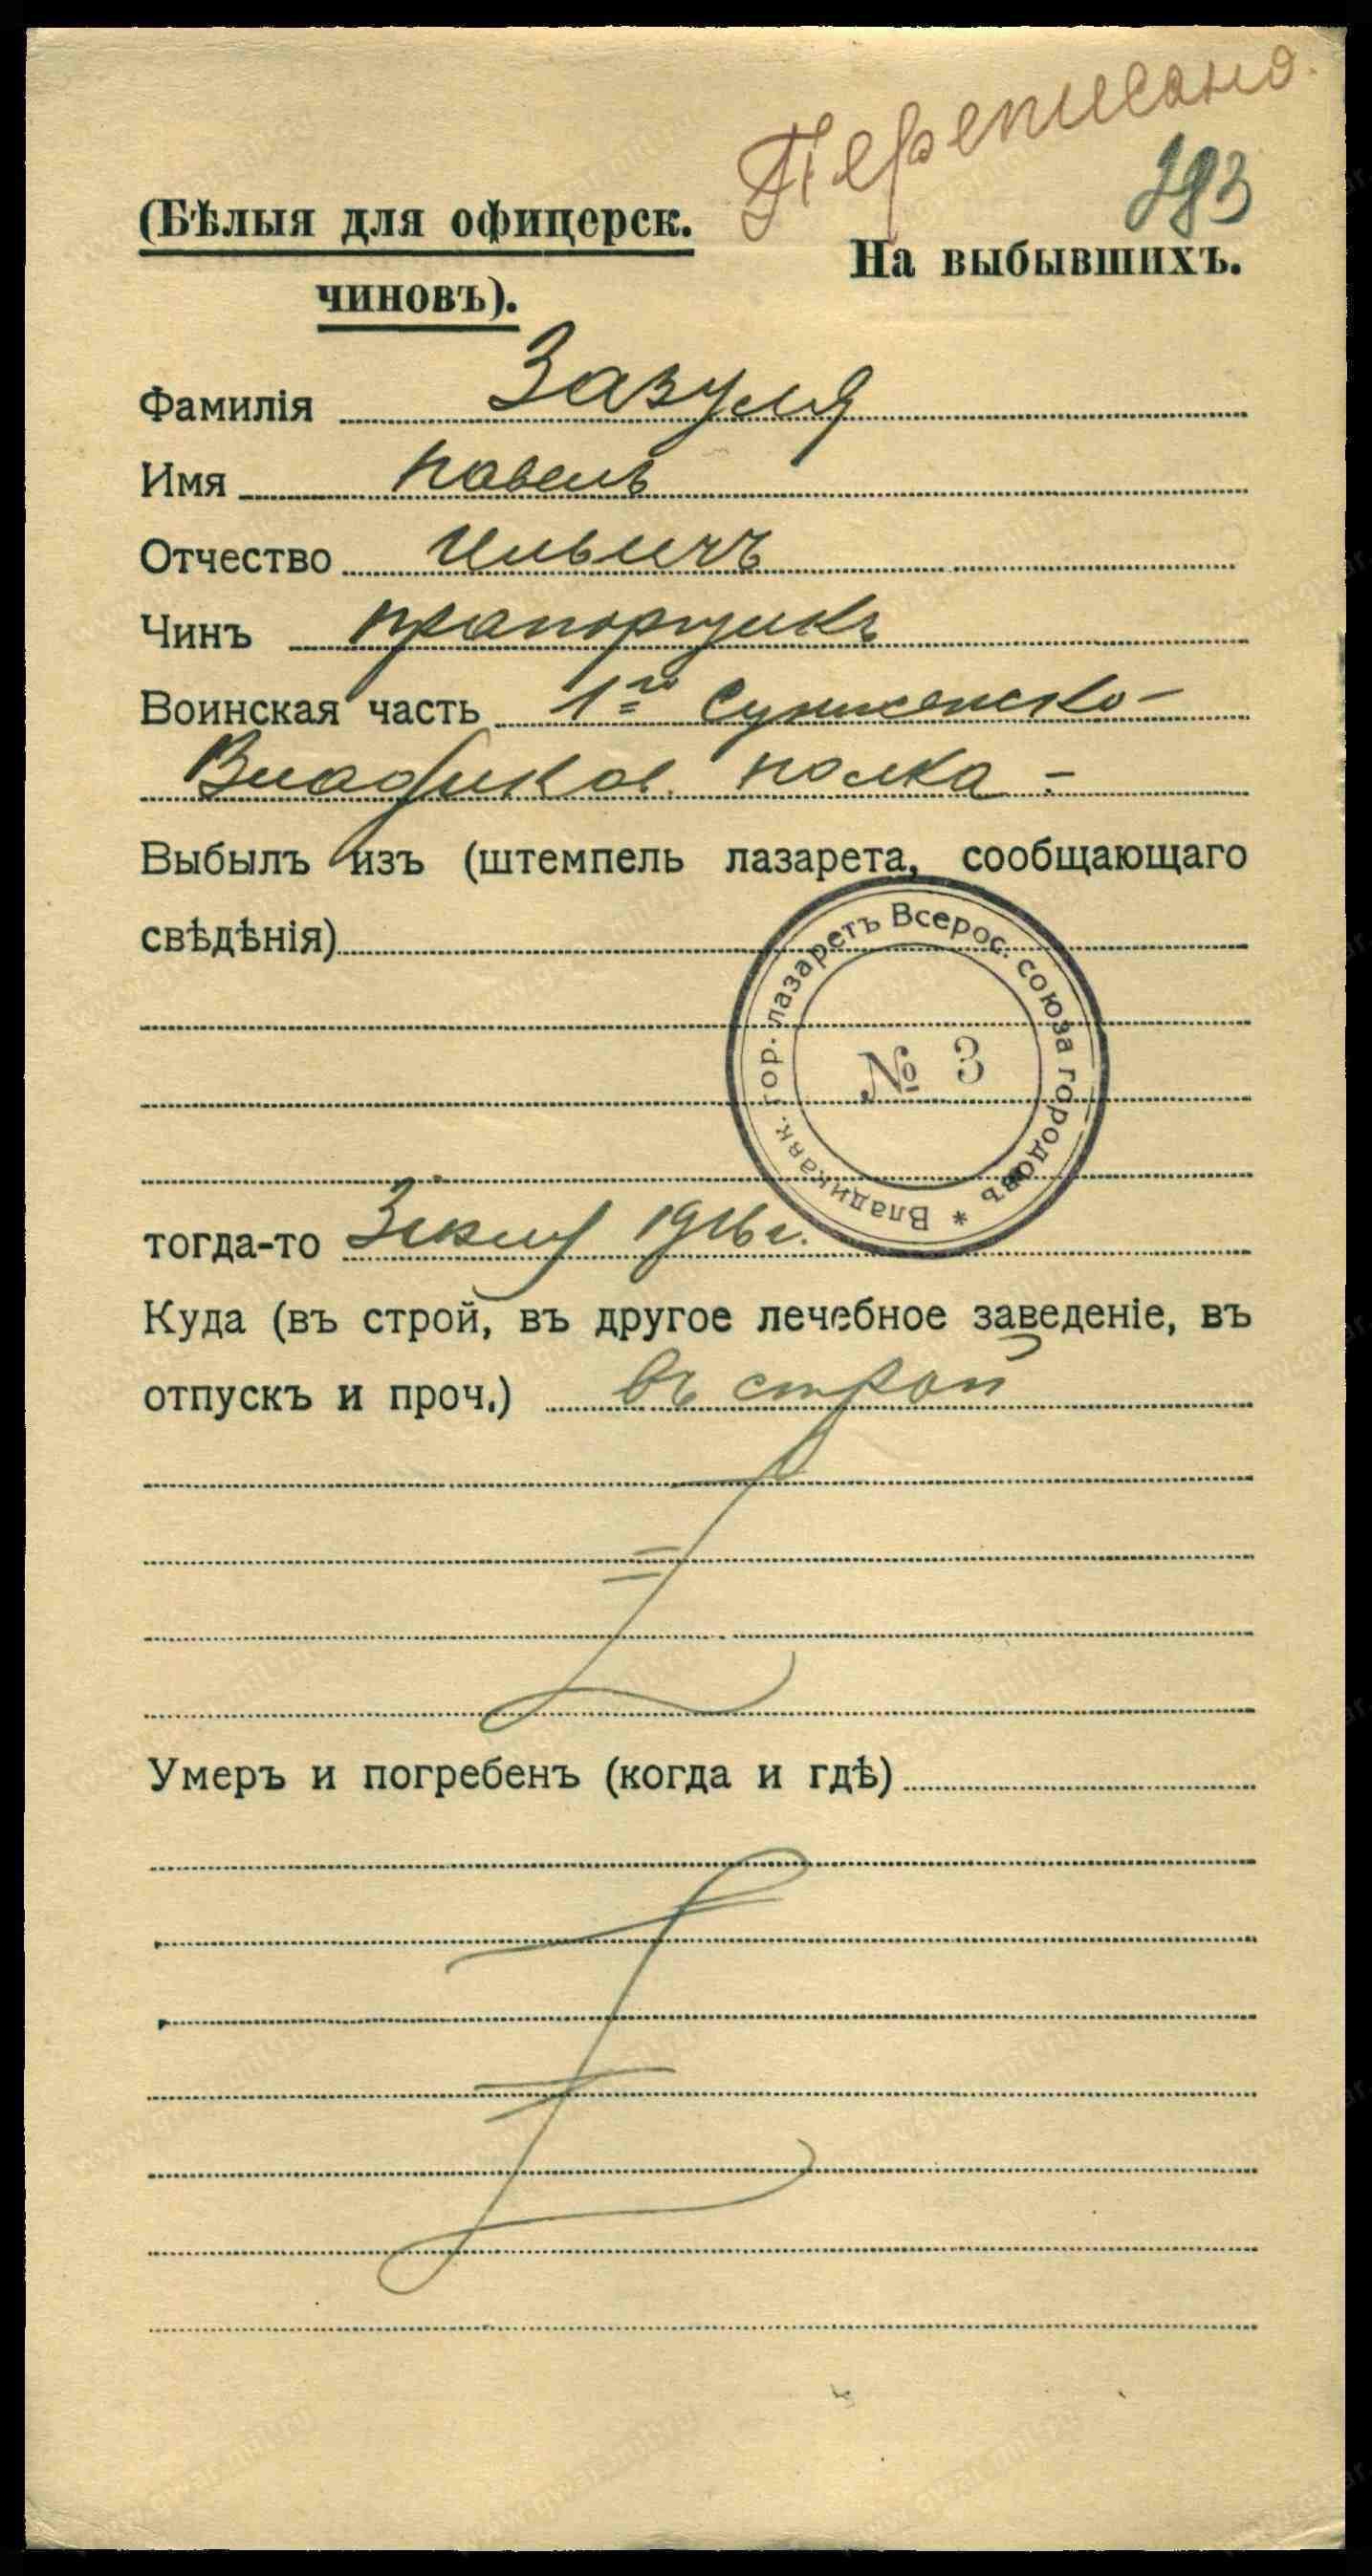 Переписано.
393
(Бѣлыя для офицерск.
чиновъ).
На выбывшихъ.
Фамилія Зазуля
Имя Павелъ
Отчество Ильичъ
Чинъ прапорщикъ
Воинская часть 1го Сунженско-
Владикав. полка -
Выбылъ изъ (штемпель лазарета, сообщающаго
свѣдѣнія)
Владикавк. гор. лазаретъ Всерос. союза городовъ *
№ 3
тогда-то 1916 г.
Куда (въ строй, въ другое лечебное заведеніе, въ
отпускъ и проч.) въ строй
Умеръ и погребенъ (когда и гдѣ)